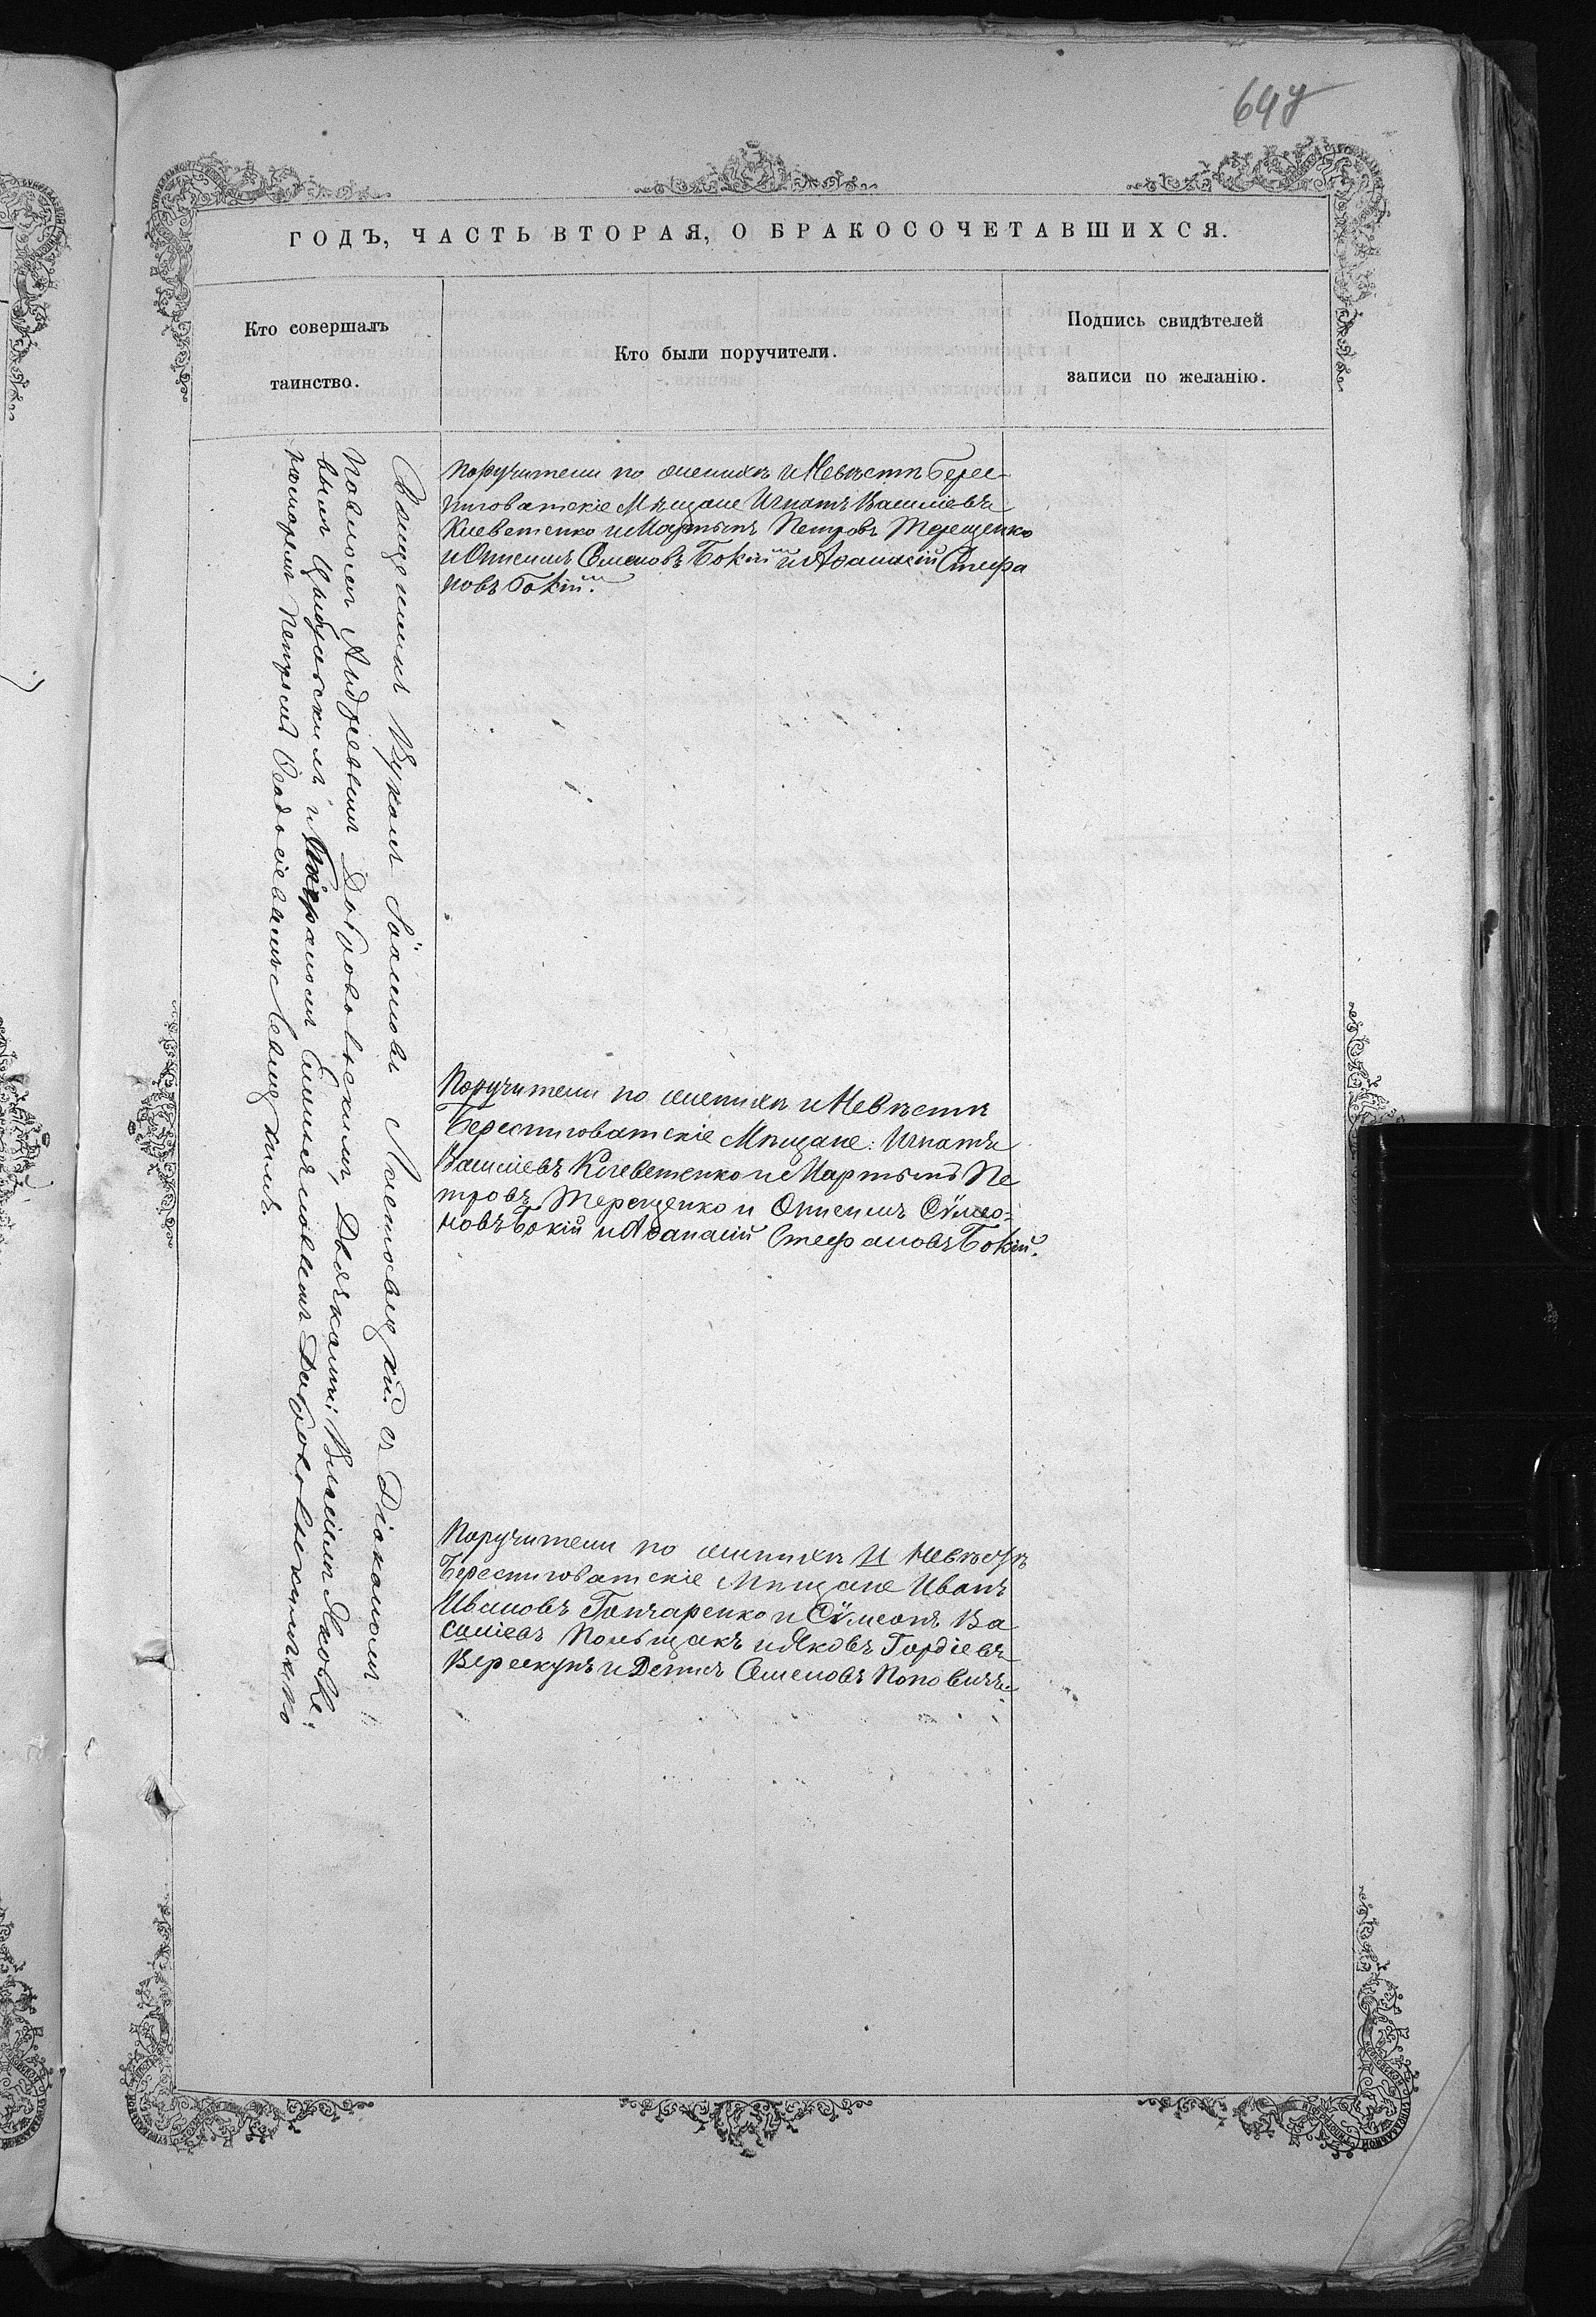 ГОДЪ, ЧАСТЬ ВТОРАЯ, О БРАКОСОЧЕТАВШИХСЯ.
Кто совершалъ
таинство.
Кто были поручители.
Подпись свидѣтелей
записи по желанію.
Священникъ Лукьян Іоанновъ с Діакономъ
Павломъ Андреевымъ Добровольскимъ, Дьячками: Василіемъ Яковле-
вымъ и Емильяновымъ Добровольскимъ и по-
номаремъ Петромъ Левицкимъ
Поручители по женихѣ и Невѣстѣ Берес-
товатскіе Мѣщане Игнатъ Васильевъ
Клеветенко и Мартынъ Петровъ Терещенко
и Семеновъ Бокій и Аѳанасій Стефа
новъ Бокій.
Поручители по женихѣ и Невѣстѣ
Берестоватскіе Мѣщане: Игнатъ
Василіевъ Клеветенко и Мартынъ Пе
тровъ Терещенко и Сѵмео-
новъ Бокій и Аѳанасій Стефановъ Бокій.
Поручители по женихѣ и невѣстѣ
Берестоватскіе Мѣщане Иванъ
Ивановъ Гончаренко и Сѵмеонъ Ва
силіевъ и Яковъ Гордіевъ
Верескунъ и Денисъ Семеновъ Поповичъ.